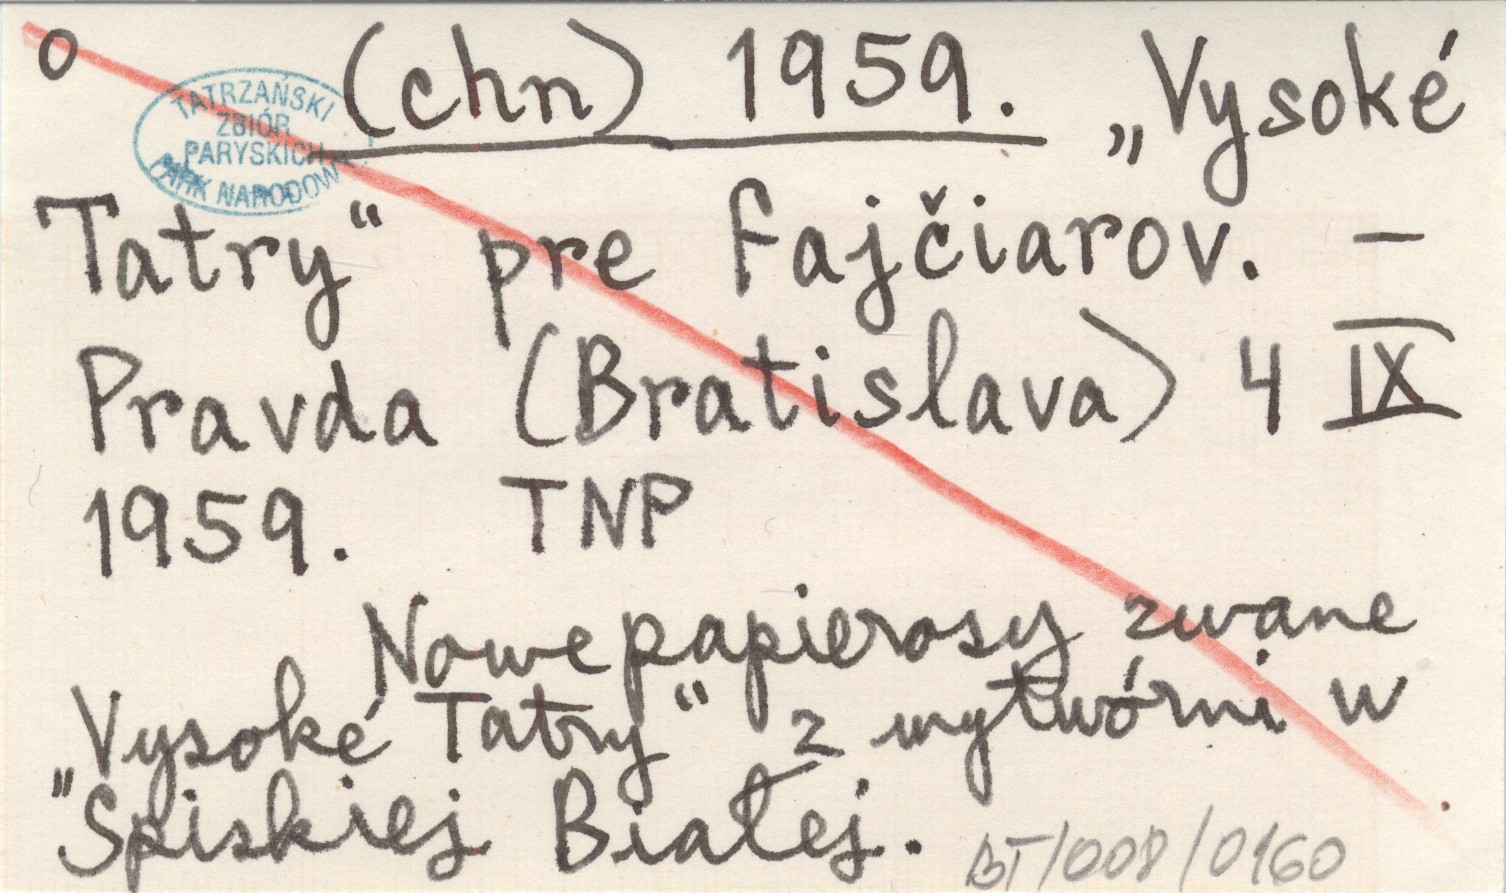 o (chn) 1959. „Vysoké
TATRZAŃSKI
ZBIÓR
PARYSKICH
PARK NARODOW
Tatry“ pre fajčiarov. –
Pravda (Bratislava) 4 IX
1959. TNP
Nowe papierosy zwane
„Vysoké Tatry“ z wytwórni w
Spiskiej Białej.
BT/008/0160